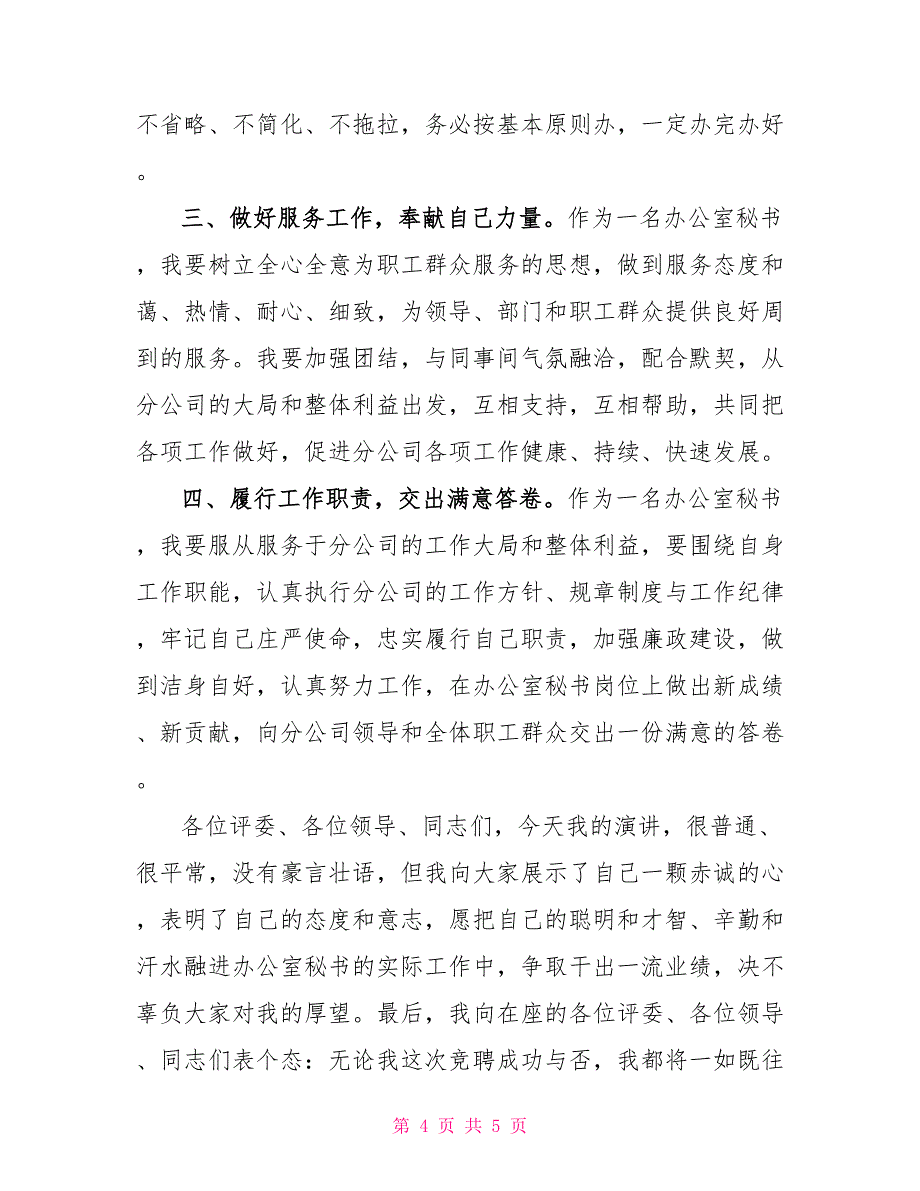 不省略、不简化、不拖拉，务必按基本原则办，一定办完办好
。
三、做好服务工作，奉献自己力量。作为一名办公室秘书
，我要树立全心全意为职工群众服务的思想，做到服务态度和
蔼、热情、耐心、细致，为领导、部门和职工群众提供良好周
到的服务。我要加强团结，与同事间气氛融洽，配合默契，从
分公司的大局和整体利益出发，互相支持，互相帮助，共同把
各项工作做好，促进分公司各项工作健康、持续、快速发展。
四、履行工作职责，交出满意答卷。作为一名办公室秘书
，我要服从服务于分公司的工作大局和整体利益，要围绕自身
工作职能，认真执行分公司的工作方针、规章制度与工作纪律
，牢记自己庄严使命，忠实履行自己职责，加强廉政建设，做
到洁身自好，认真努力工作，在办公室秘书岗位上做出新成绩
、新贡献，向分公司领导和全体职工群众交出一份满意的答卷
。
各位评委、各位领导、同志们，今天我的演讲，很普通、
很平常，没有豪言壮语，但我向大家展示了自己一颗赤诚的心
，表明了自己的态度和意志，愿把自己的聪明和才智、辛勤和
汗水融进办公室秘书的实际工作中，争取干出一流业绩，决不
辜负大家对我的厚望。最后，我向在座的各位评委、各位领导
、同志们表个态：无论我这次竞聘成功与否，我都将一如既往
第 4 页 共 5 页